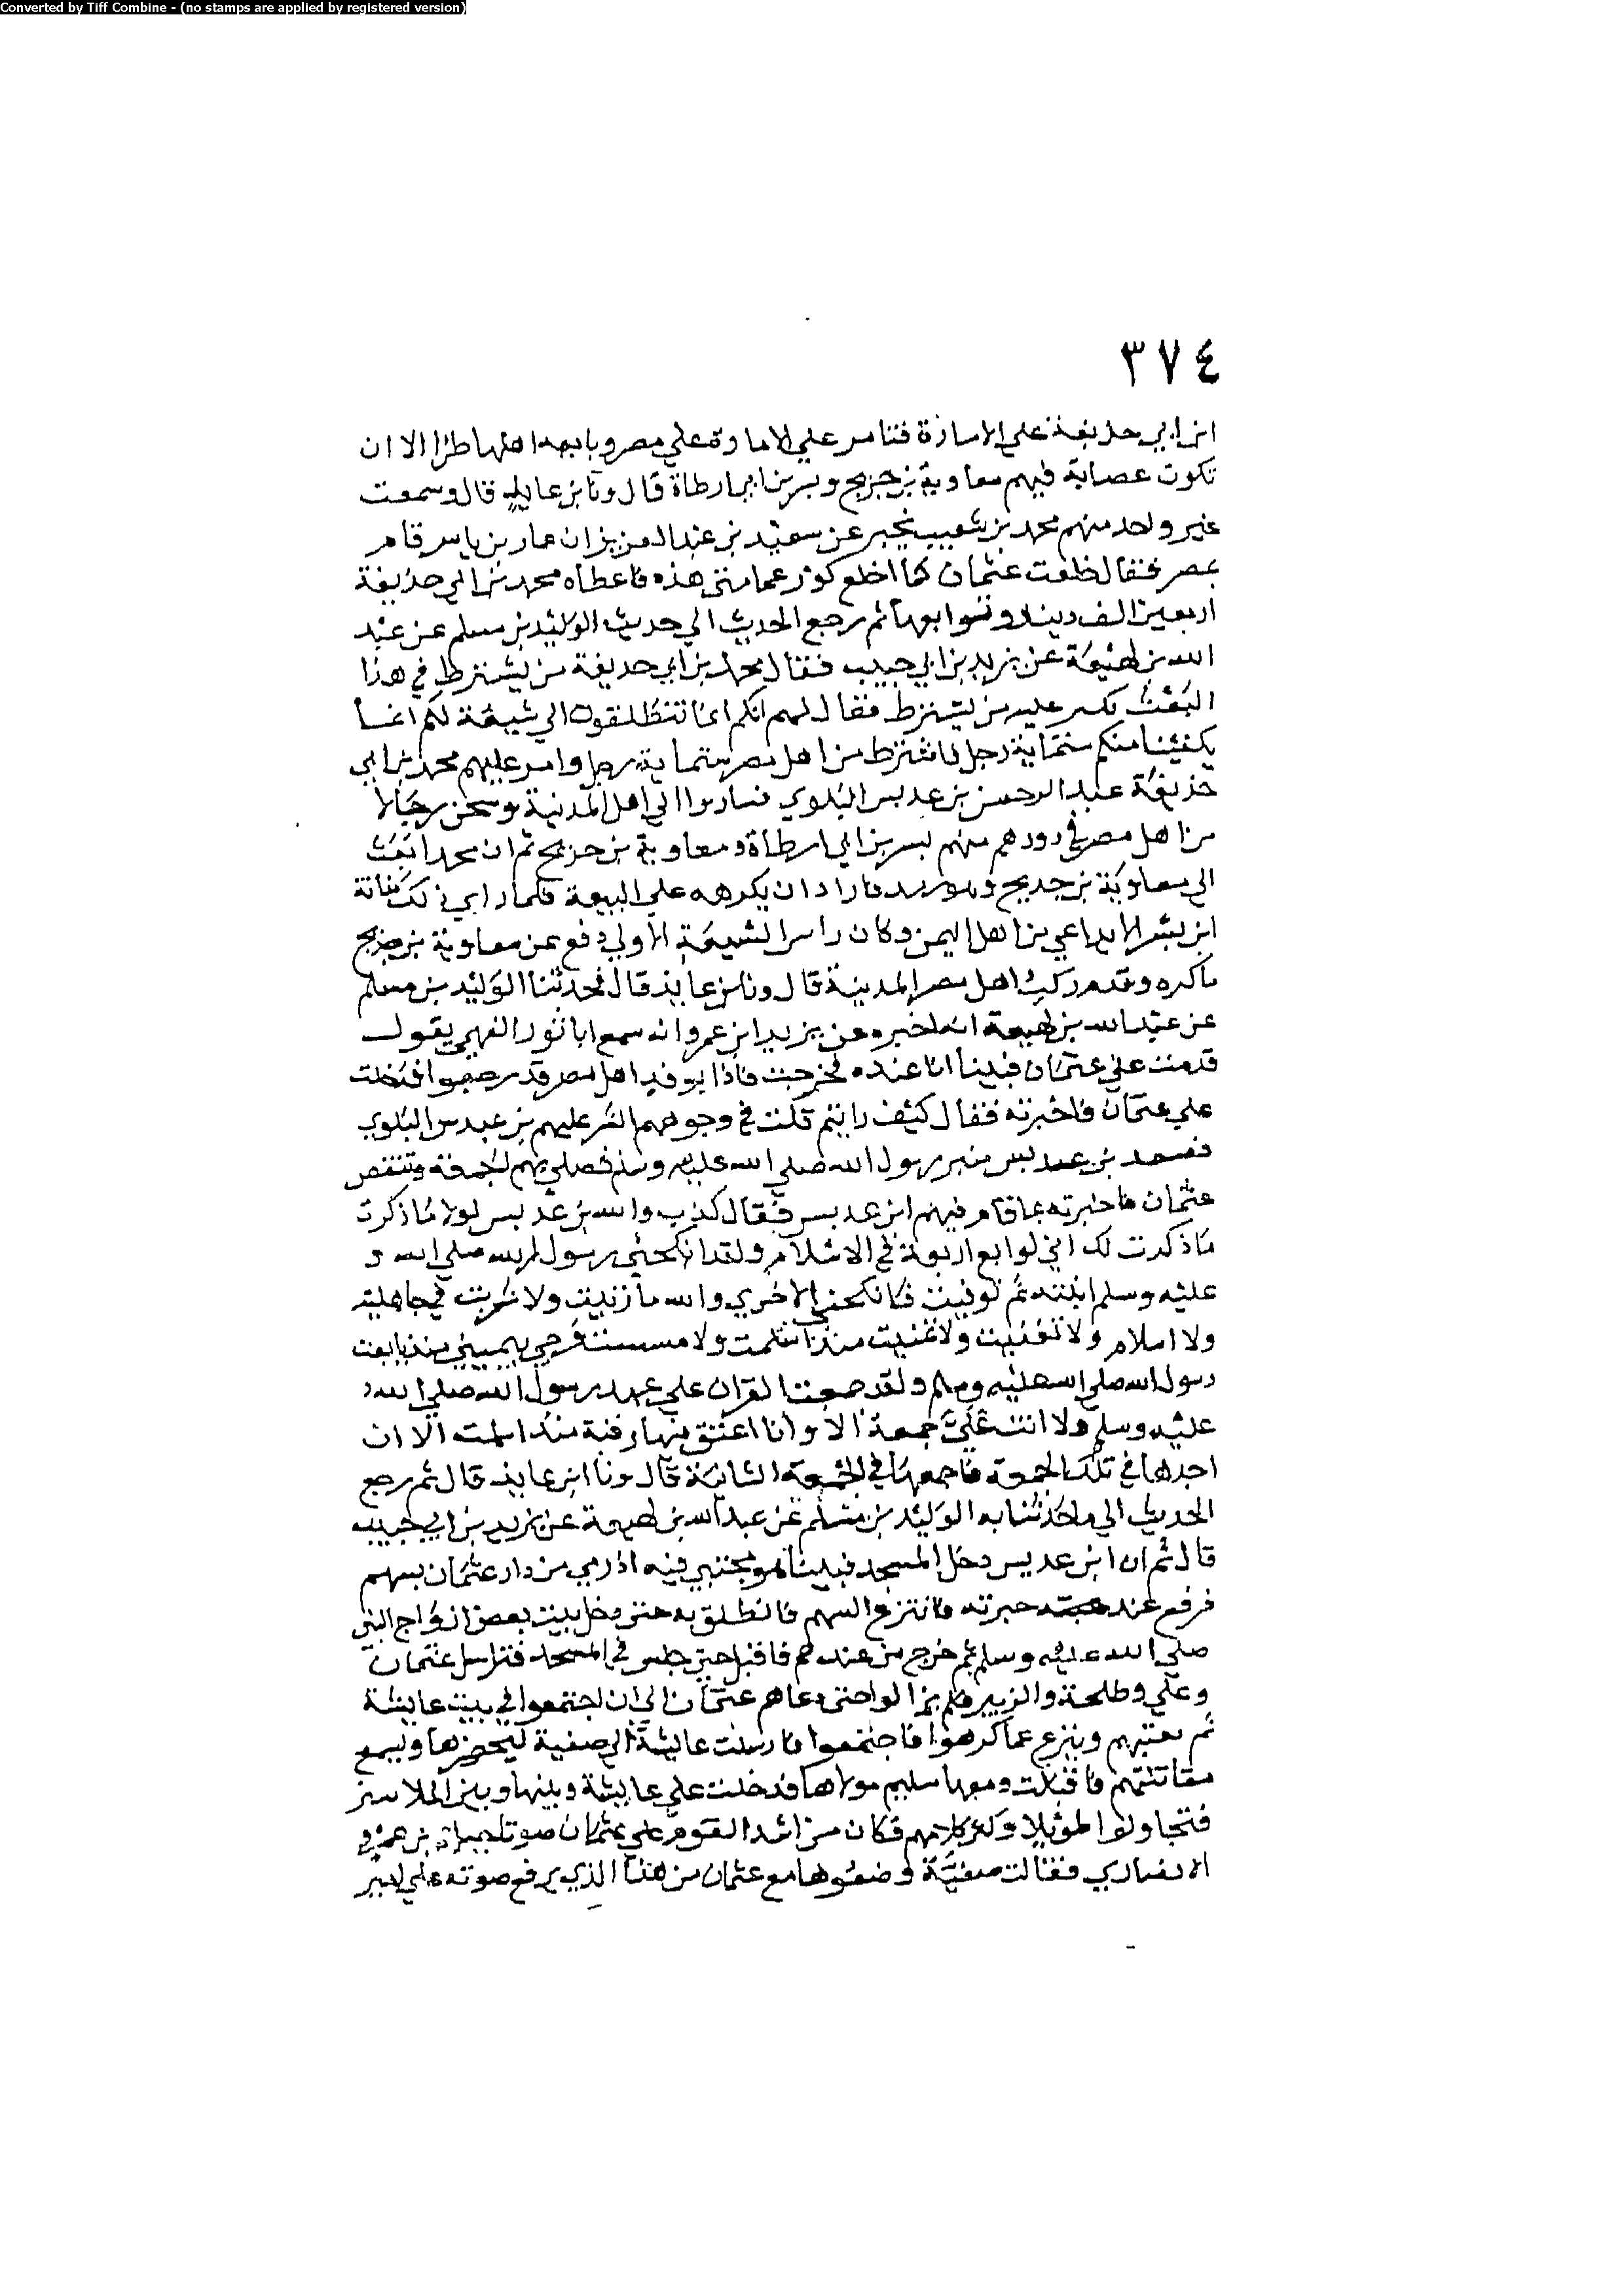 Converted by Tiff Combine - (no stamps are applied by registered version)
٣٧٤
ابن ابي حذيفة على الامارة فتامر علي الامارة علي مصر وبايعه اهلها طرا الا ان
تكون عصابة فيهم معاوية بن حديج وبسر بن ابي ارطاة قال ونا بن عايذ قال وسمعت
غير واحد منهم محمد بن شعيب يخبر عن سعيد بن عبد العزيز ان عمار بن ياسر قام
بمصر فقال خلعت عثمان كما اخلع كور عمامتي هذه فاعطاه محمد بن ابي حذيفة
اربعين الف دينار ثم رجع الحديث الي حديث الوليد بن مسلم عن عبد
الله بن لهيعة عن يزيد بن ابي حبيب فقال محمد بن ابي حذيفة من يشترط في هذا
البعث عليه من يشترط فقال لهم انكم انما تنطلقون الي شيعة لكم انما
يكفينا منكم ستماية رجل فاشترط من اهل مصر ستماية رجل وامر عليهم محمد بن ابي
حذيفة عبد الرحمن بن عديس البلوي فساروا الي اهل المدينة وسجن رجالا
من اهل مصر في دورهم منهم بسر بن ابي ارطاة ومعاوية بن حديج ثم ان محمدا بعث
الي معاوية بن حديج فاراد ان يكرهه على البيعة فلما راي ذلك كنانة
ابن بشر الايداعي من اهل اليمن وكان راس الشيعة الاولي دفع عن معاوية بن حديج
ماكره وقدم ركب اهل مصر المدينة قال ونا بن عايذ قال فحدثنا الوليد بن مسلم
عن عبد الله بن لهيعة انه اخبره عن يزيد ابن عمرو انه سمع ابا ثور الفهمي يقول
قدمت علي عثمان فبينا انا عنده فخرجت فاذا بوفد اهل مصر قد رجعوا فدخلت
علي عثمان فاخبرته فقال كيف رايتم قلت في وجوههم الشر عليهم بن عديس البلوي
فصعد بن عديس منبر رسول الله صلي الله عليه وسلم فصلي بهم الجمعة وتنقص
عثمان فاخبرته بما قام فيهم ابن عديس فقال كذب والله بن عديس لولا ما ذكرت
ما ذكرت لك اني لرابع اربعة في الاسلام ولقد انكحني رسول الله صلي الله و
عليه وسلم ابنته ثم توفيت فانكحني الاخري والله ما زنيت ولا سرقت في جاهلية
ولا اسلام ولا تغنيت ولا تمنيت منذ اسلمت ولا مسست فرجي بيميني منذ بايعت
رسول الله صلي الله عليه وسلم ولقد جمعت القران علي عهد رسول الله صلي الله
عليه وسلم ولا اتت علي جمعة الا وانا اعتق فيها رقبة منذ اسلمت الا ان
اجدها في تلك الجمعة فاجمعها في الجمعة الثانية قال ونا ابن عايذ قال ثم رجع
الحديث الي ما حدثنا به الوليد بن مسلم عن عبد الله بن لهيعة عن يزيد بن ابي حبيب
قال ثم ان ابن عديس دخل المسجد فبينا هو محتبي فيه اذ رمي من دار عثمان بسهم
فرفع عند حبرته فانتزع السهم فانطلق به حتى دخل بيت بعض ازواج النبي
صلي الله عليه وسلم ثم خرج من عندهم فاقبل حتى جلس في المسجد فتراسل عثمان
وعلي وطلحة والزبير فلم يزالوا حتى دعاهم عثمان الي ان اجتمعوا في بيت عايشة
ثم يعتبهم وينزع عما كرهوا فاجتمعوا فارسلت عايشة الي صفية ليحضرها ويسمع
مقالتهم فاقبلت ومعها سليم مولاها فدخلت علي عايشة وبينها وبين الملا ستر
فتجاولوا طويلا وكثر كلامهم فكان من اشد القوم علي عثمان صوتا بن عمرو
الانصاري فقالت صفية وضعوها مع عثمان من هذا الذي يرفع صوته علي امير